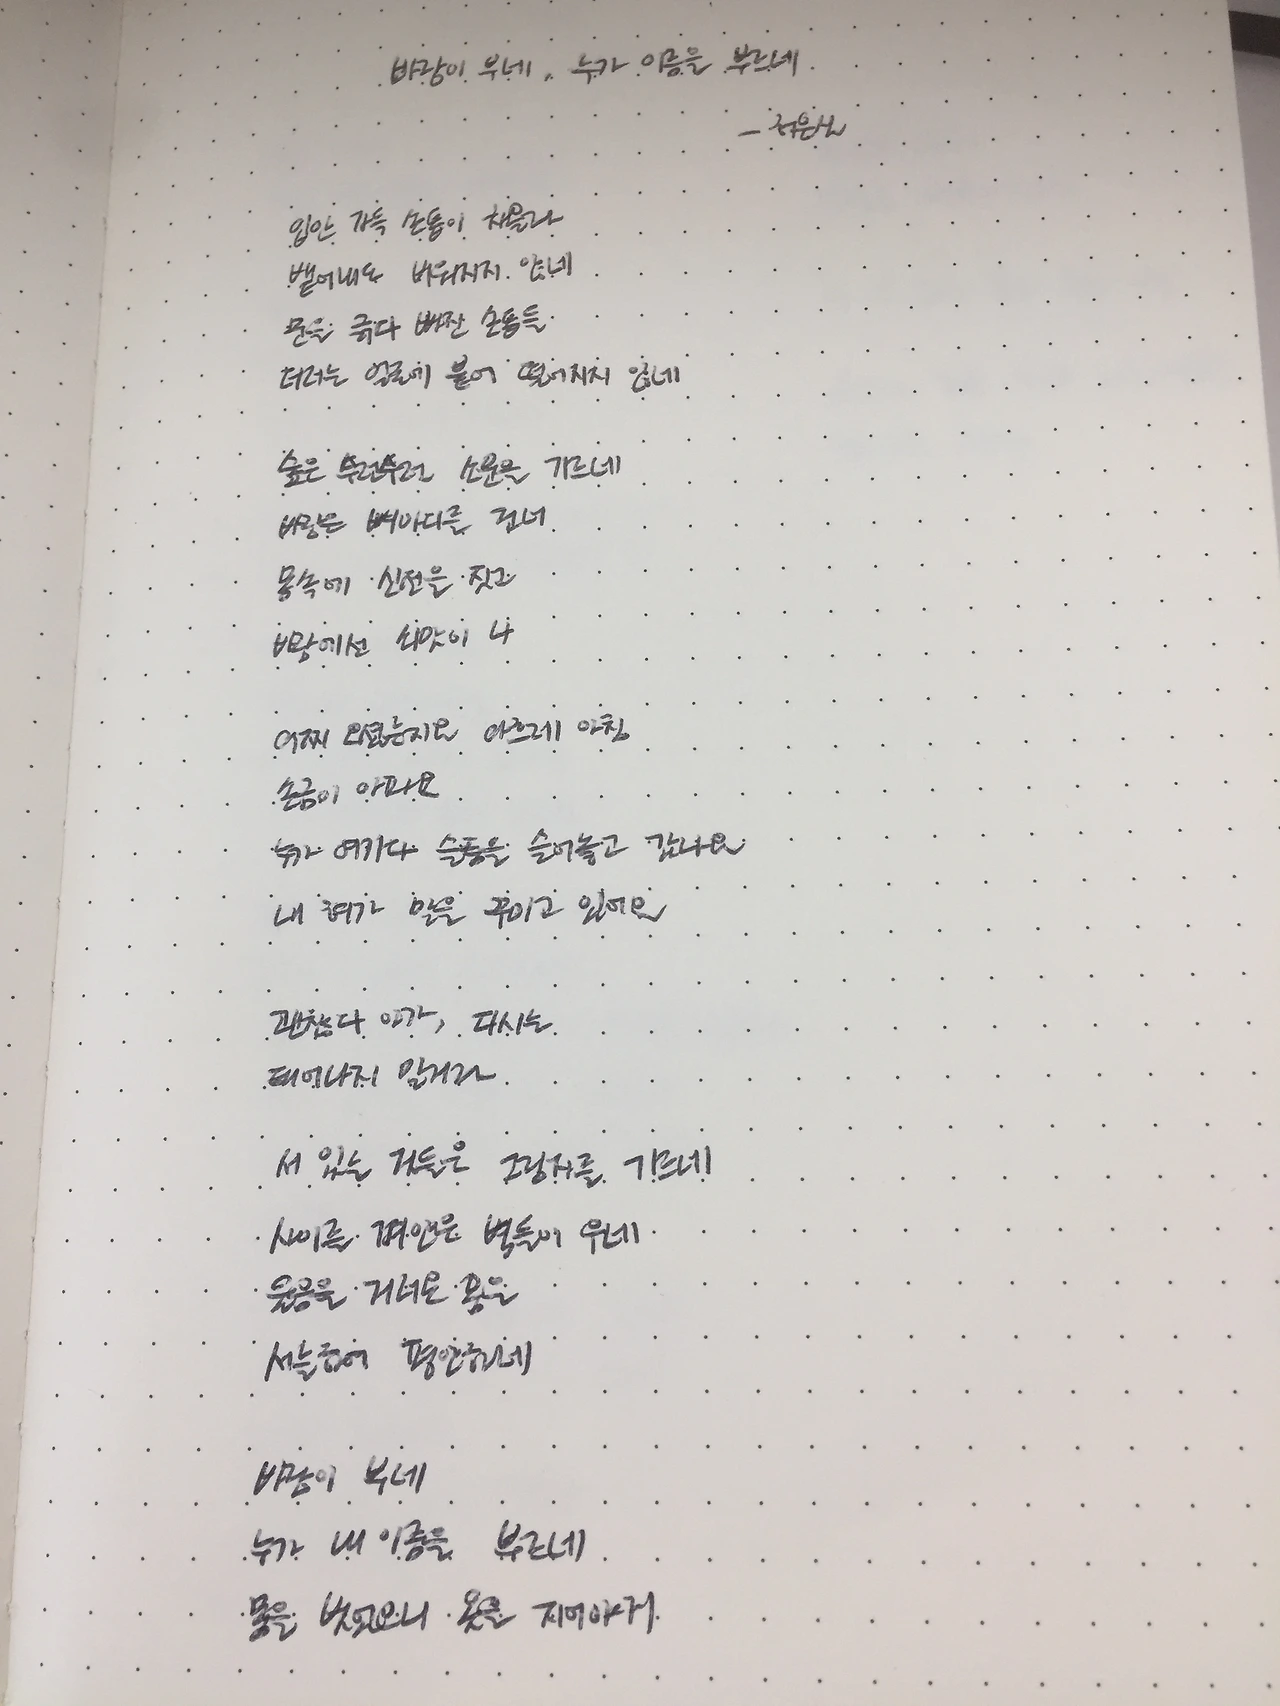 바람이 부네, 누가 이름을 부르네
- 허은실
입안 가득 손톱이 차올라
뱉어내도 비워지지 않네
문을 긁다 빠진 손톱들
더러는 얼굴에 붙어 떨어지지 않네
숲은 수런수런 소문을 기르네
바람은 뼈마디를 건너
몸속에 신전을 짓고
바람에선 쇠맛이 나
어찌 오셨는지요 아흐레 아침
손금이 아파요
누가 여기다 슬픔을 슬어놓고 갔나요
내 혀가 말을 꾸미고 있어요
괜찮다 아가, 다시는
태어나지 말거라
서 있는 것들은 그림자를 기르네
사이를 껴안은 벽들이 우네
울음을 건너온 몸은
서늘하여 평안하네
바람이 부네
누가 내 이름을 부르네
몸을 벗었으니 옷을 지어야지